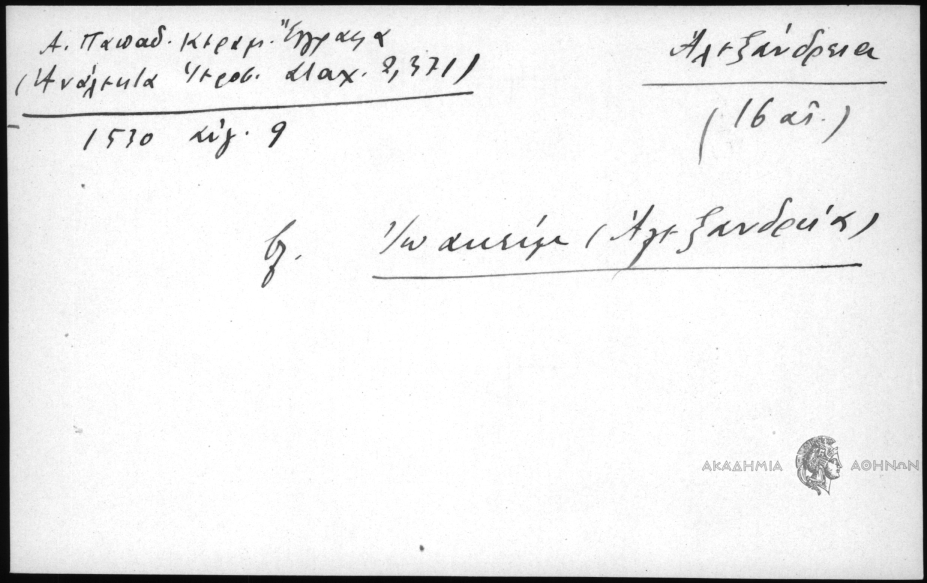 Α. Παπαδ. Κεραμ. Ἔγγραφα
(Ἀνάλεκτα Ἱεροσ. Σταχ. 2, 371)
1530 Αὐγ. 9
Ἀλεξάνδρεια
(16 αἰ.)
βλ. Ἰωακείμ (Ἀλεξανδρείας)
ΑΚΑΔΗΜΙΑ ΑΘΗΝΩΝ